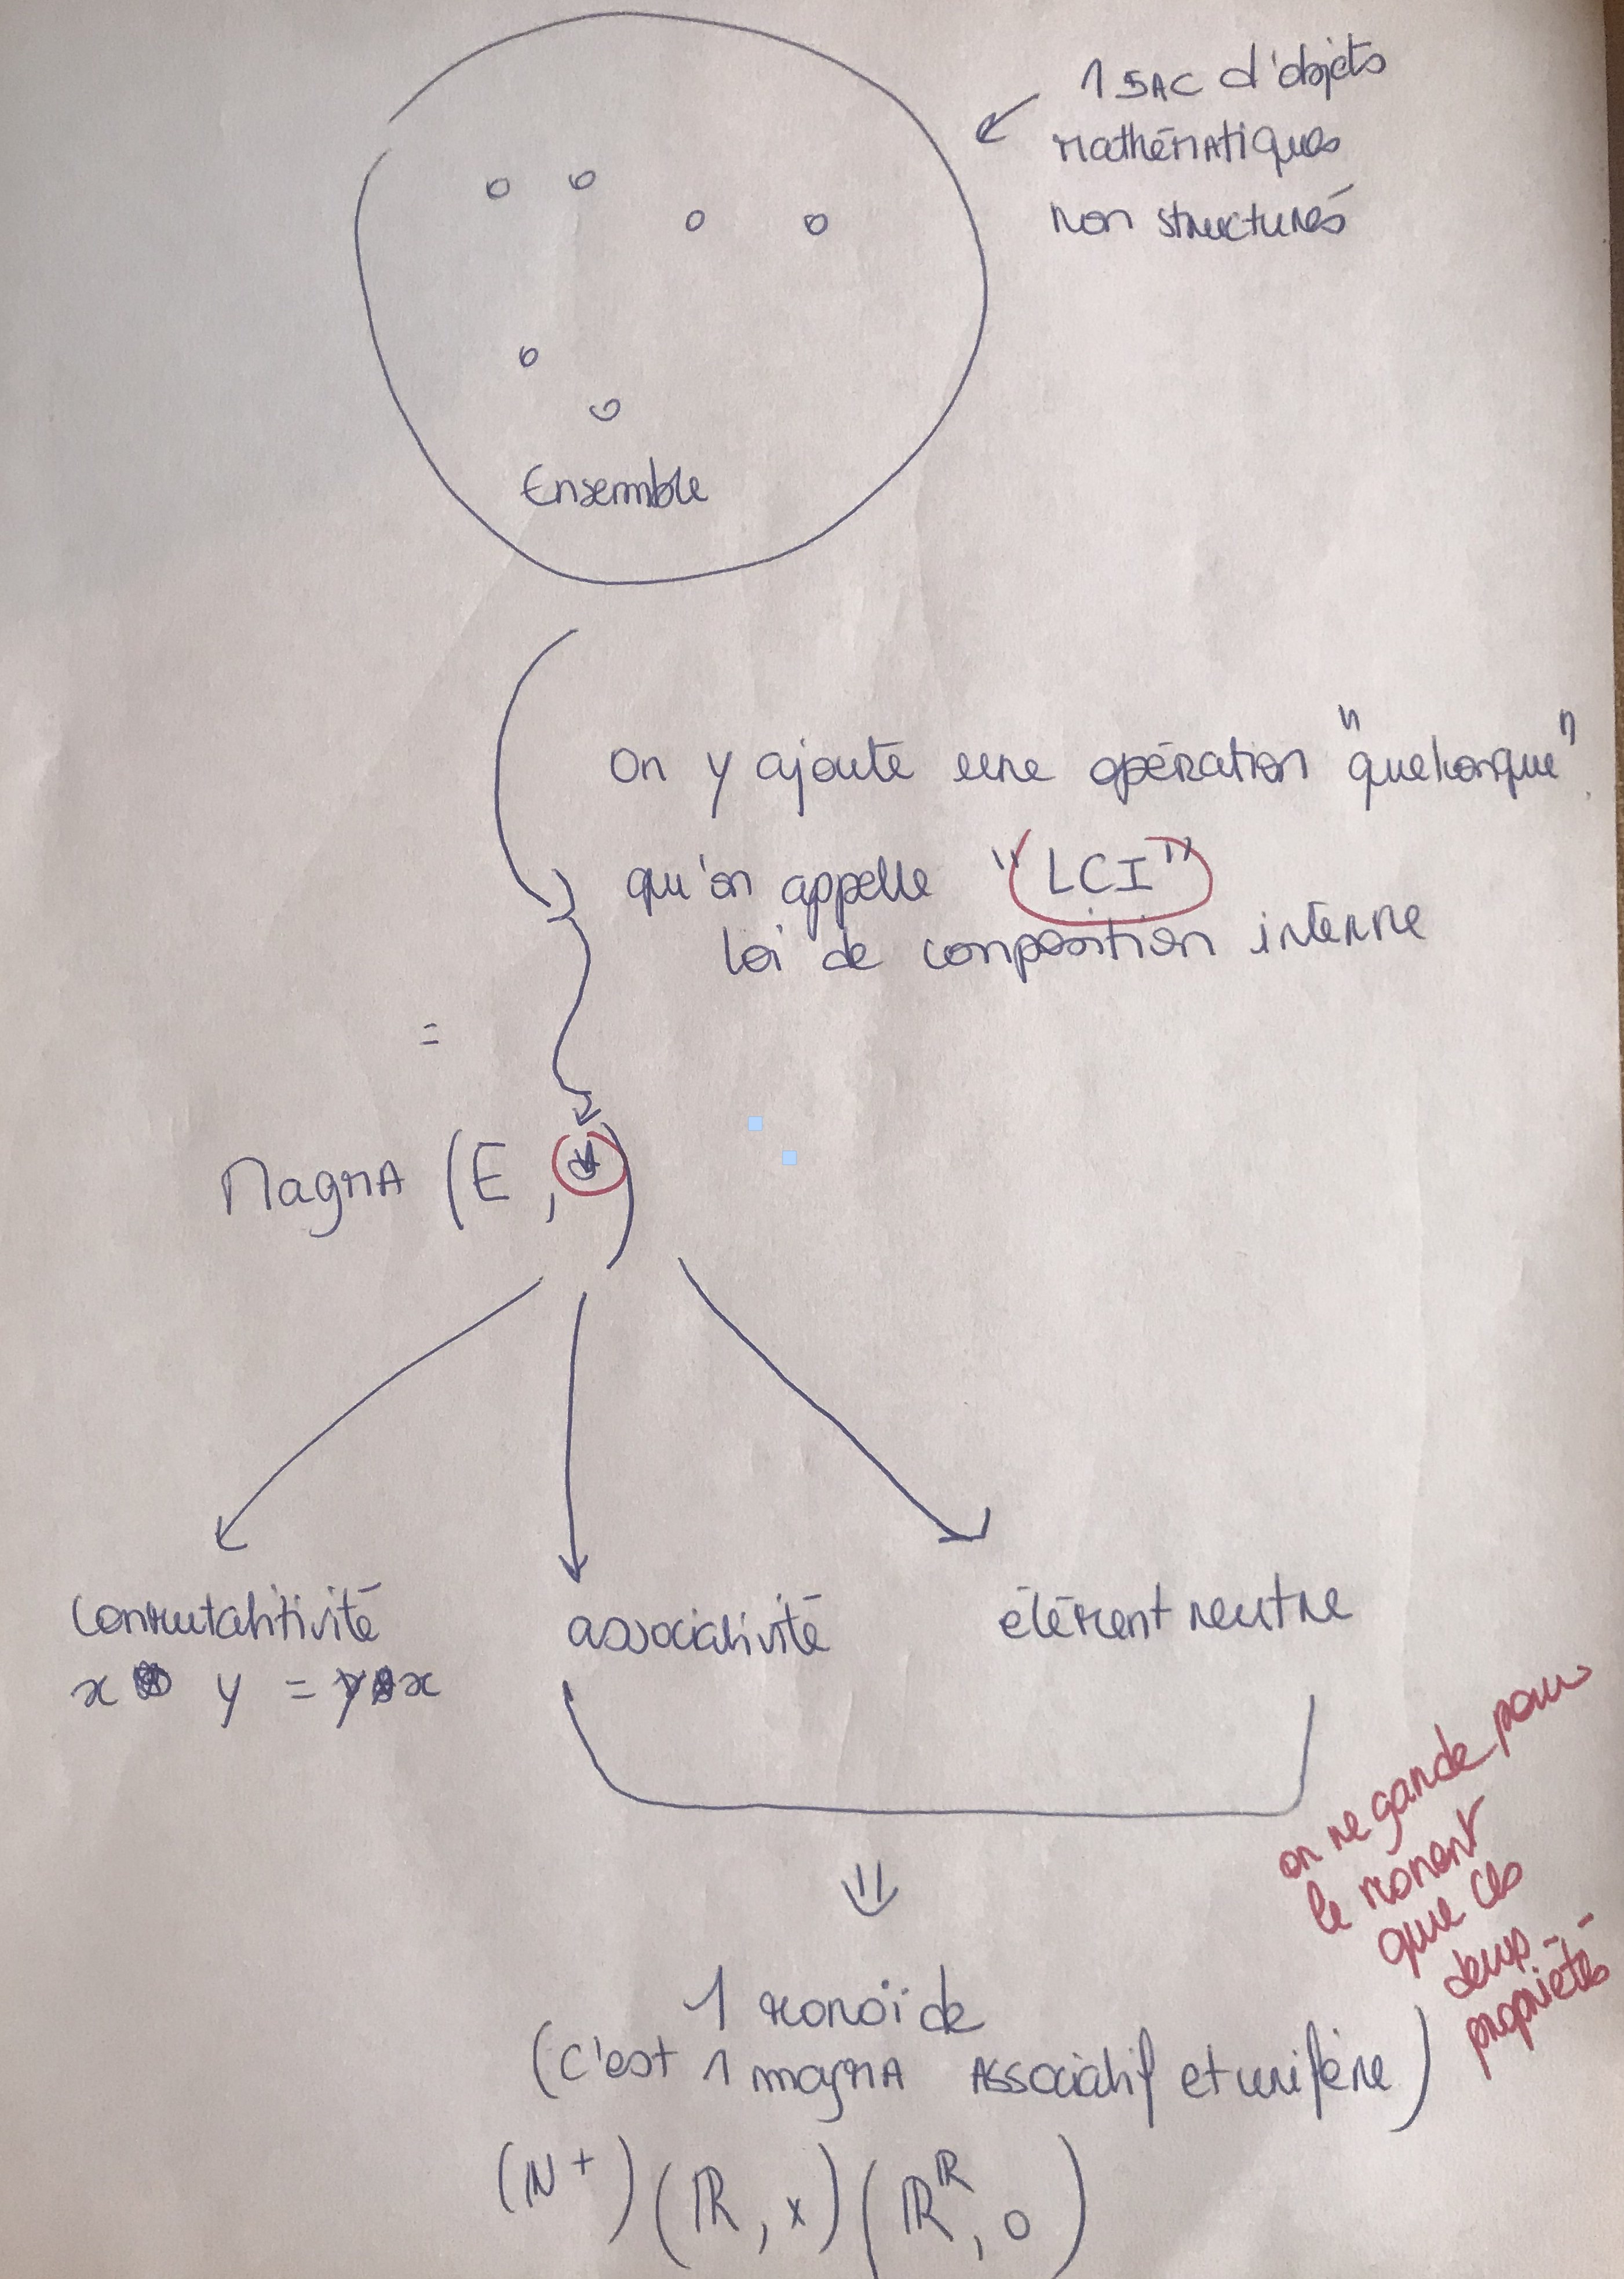 1 SAC d'objets
mathématiques
non structurés
Ensemble
On y ajoute une opération "quelconque"
qu'on appelle "LCI"
loi de composition interne
=
MagmA (E, *)
Commutahtivité
associativité
élément neutre
x y = y x
on ne garde pour
le moment
que ces
deux
propriétés
1 monoïde
(C'est 1 magmA Associatif et unifère)
(N +) (ℝ, x) (ℝ^ℝ, o)